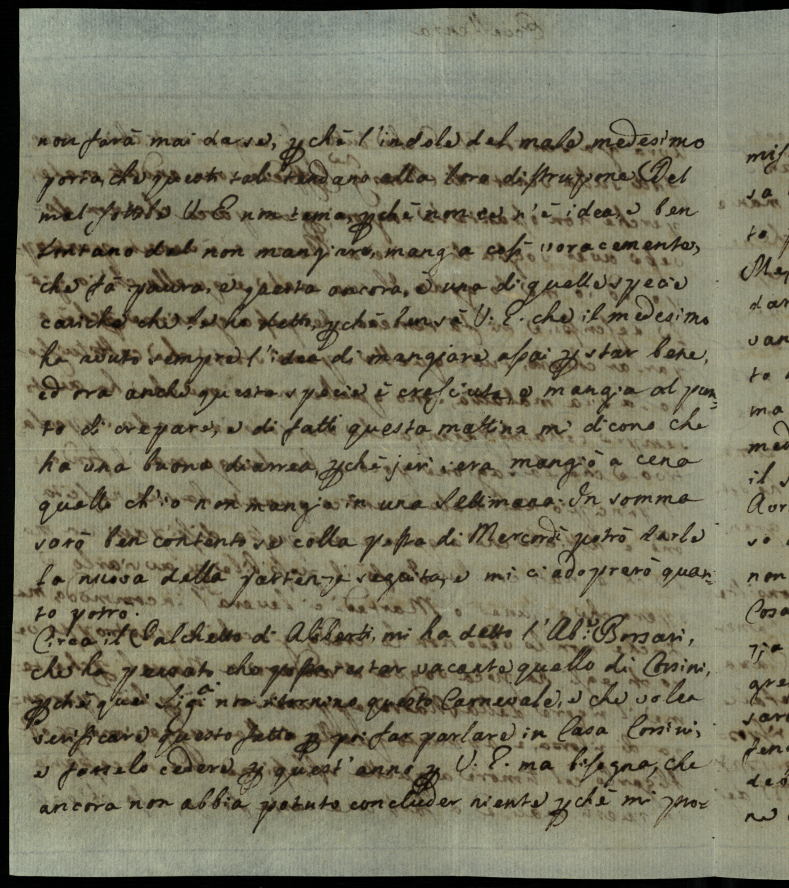 non farà mai da se, pchè l'indole del male medesimo
porta, che questi tali tendano alla loro distruzione. Del
mal sottile V. E. non tema, pchè non ce n'è idea, e ben
lontano dal non mangiare, mangia così voracemente,
che fà paura, e questa ancora, è una di quelle specie
cariche che le ho detto, pchè ben sà V. E. che il medesimo
ha avuto sempre l'idea di mangiare assai p star bene,
ed ora anche questa specie è cresciuta, e mangia al pun-
to di crepare, e di fatti questa mattina mi dicono che
ha una buona diarrea, pchè jeri sera mangiò a cena
quello ch'io non mangio in una Settimana. In somma
sarò ben contento se colla posta di Mercordì potrò darle
la nuova della partenza seguita, e mi ci adoprerò quan-
to potrò.
Circa il Palchetto di Aliberti, mi ha detto l'Ab.e Borsari,
che ha pensato che possa restar vacante quello di Corsini,
pchè quei Sig.i non tornino questo Carnevale, e che volea
verificare questo fatto p poi far parlare in Casa Corsini,
e farselo cedere p quest'anno p V. E. ma bisogna, che
ancora non abbia potuto concluder niente pchè mi pro-
mis
sa
to
dar
van
to
ma
med
il s
so
non
Cosa
zia
gre
sar
ne